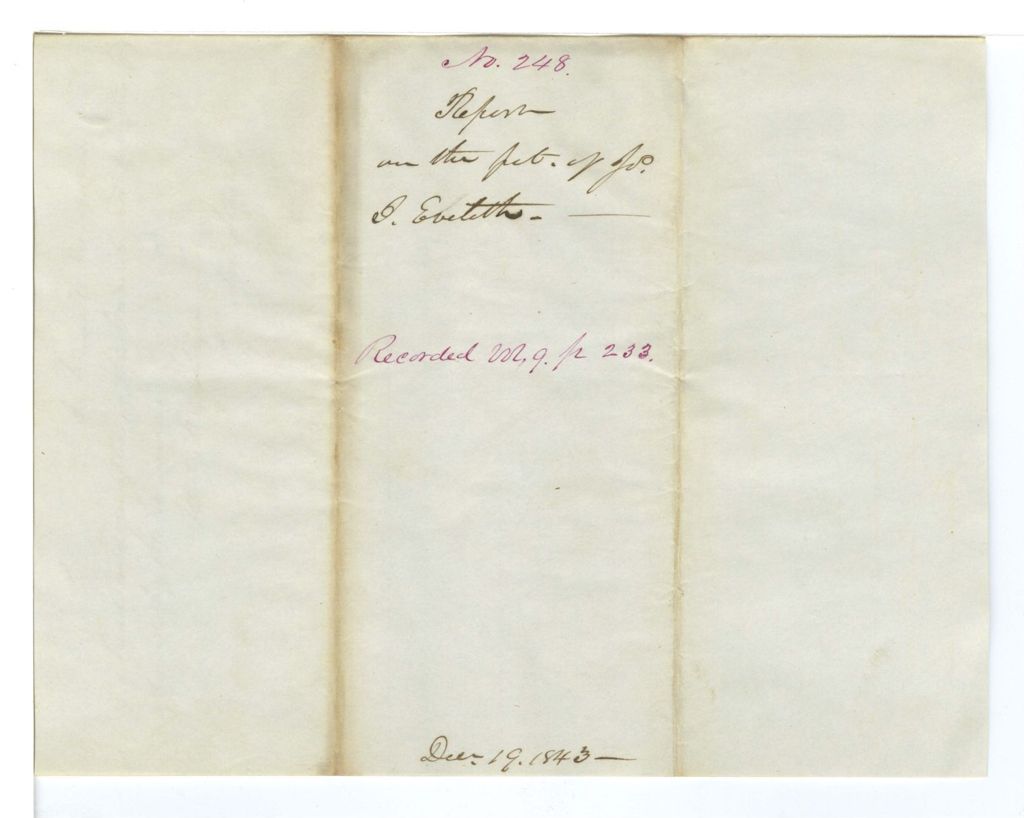 No. 248.
Report
on the pet. of Jno.
S. Eveleth.
Recorded Vol. 9. p 233.
Decr 19. 1843